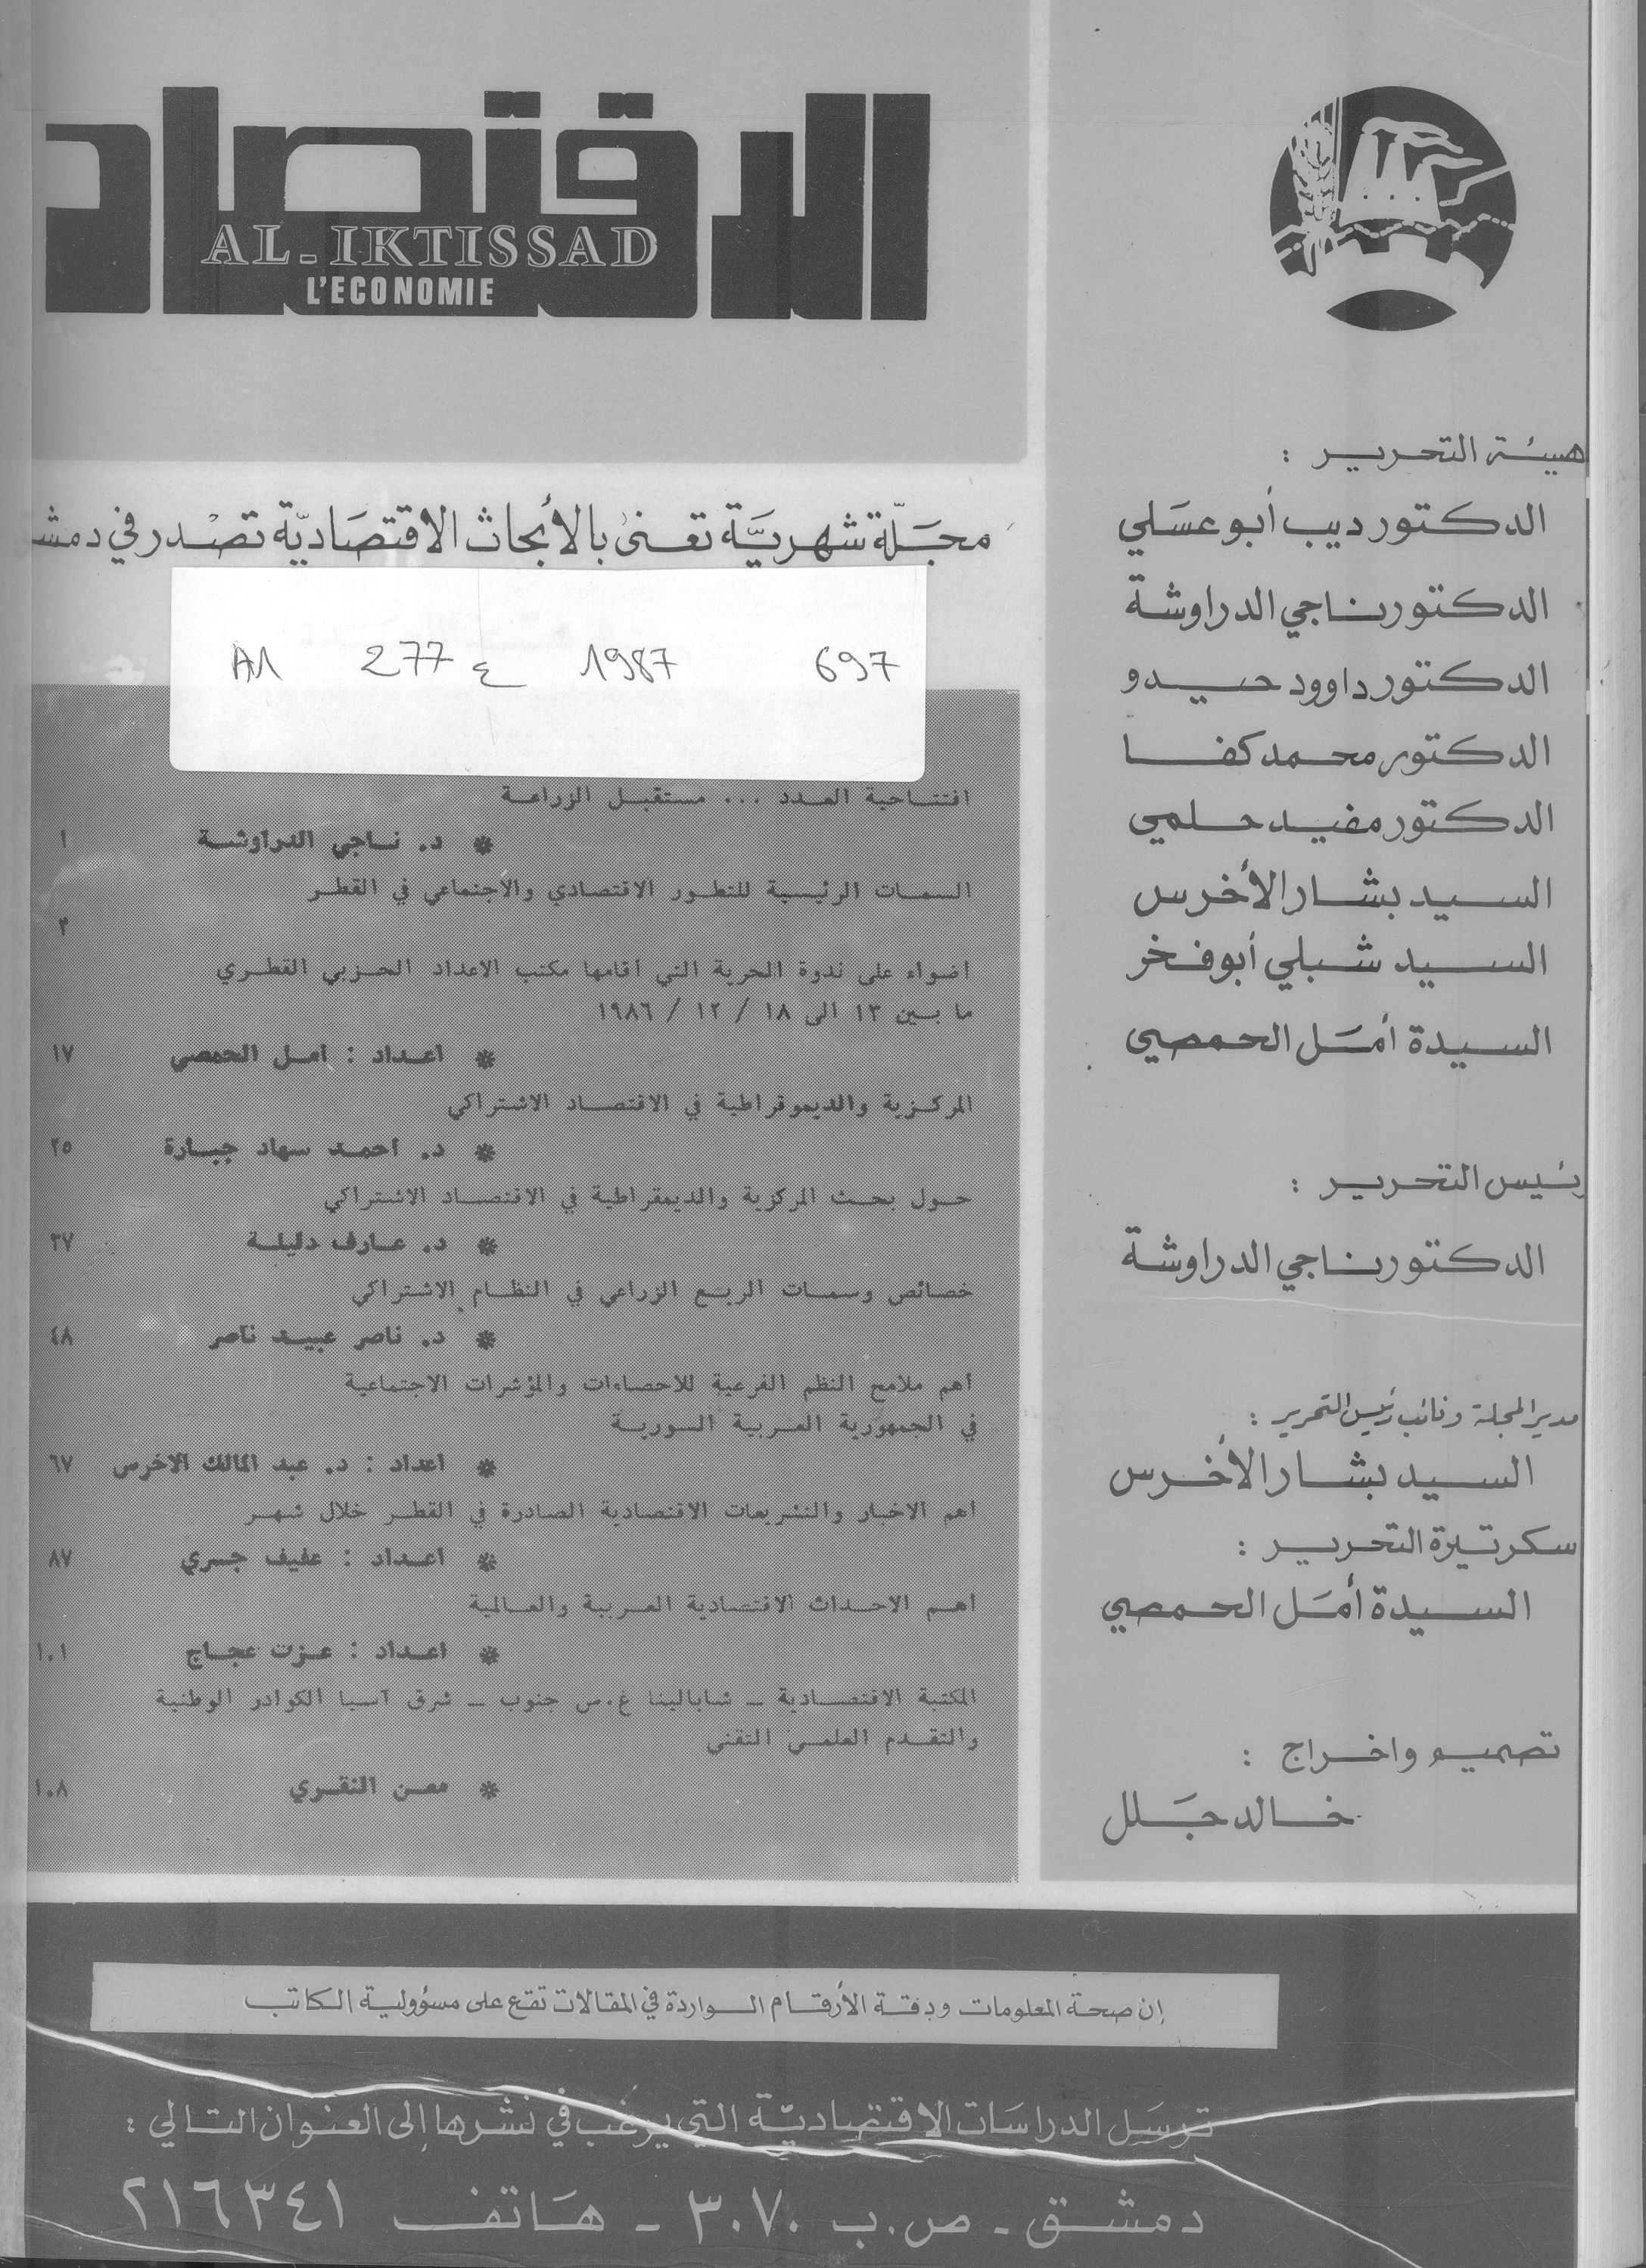 الاقتصاد
AL-IKTISSAD
L'ECONOMIE
مجلة شهرية تعنى بالأبحاث الاقتصادية تصدر في دمشـ
A1 277 ع 1987 697
افتتاحية العدد ... مستقبل الزراعة
* د. ناجي الدراوشة ١
السمات الرئيسية للتطور الاقتصادي والاجتماعي في القطر
٣
اضواء على ندوة الحرية التي أقامها مكتب الاعداد الحزبي القطري
ما بين ١٣ الى ١٨ / ١٢ / ١٩٨٦
* اعداد : امل الحمصي ١٧
المركزية والديموقراطية في الاقتصاد الاشتراكي
* د. احمد سهاد جبارة ٢٥
حول بحث المركزية والديمقراطية في الاقتصاد الاشتراكي
* د. عارف دليلة ٣٧
خصائص وسمات الريع الزراعي في النظام الاشتراكي
* د. ناصر عبيد ناصر ٤٨
اهم ملامح النظم الفرعية للاحصاءات والمؤشرات الاجتماعية
في الجمهورية العربية السورية
* اعداد : د. عبد المالك الاخرس ٦٧
اهم الاخبار والتشريعات الاقتصادية الصادرة في القطر خلال شهر
* اعداد : عفيف جسري ٨٧
اهم الاحداث الاقتصادية العربية والعالمية
* اعداد : عزت عجاج ١٠١
المكتبة الاقتصادية ـ شابالينا غ.س جنوب ـ شرق آسيا الكوادر الوطنية
والتقدم العلمي التقني
* معن النقري ١٠٨
هيئة التحرير :
الدكتور ديب أبو عسلي
الدكتور ناجي الدراوشة
الدكتور داوود حيدو
الدكتور محمد كفا
الدكتور مفيد حلمي
السيد بشار الأخرس
السيد شبلي أبو فخر
السيدة أمل الحمصي
رئيس التحرير :
الدكتور ناجي الدراوشة
مدير المجلة ونائب رئيس التحرير :
السيد بشار الأخرس
سكرتيرة التحرير :
السيدة أمل الحمصي
تصميم واخراج :
خالد جلل
إن صحة المعلومات ودقة الأرقام الواردة في المقالات تقع على مسؤولية الكاتب
ترسل الدراسات الاقتصادية التي يرغب في نشرها إلى العنوان التالي :
دمشق ـ ص.ب ٣٠٧٠ ـ هاتف ٢١٦٣٤١